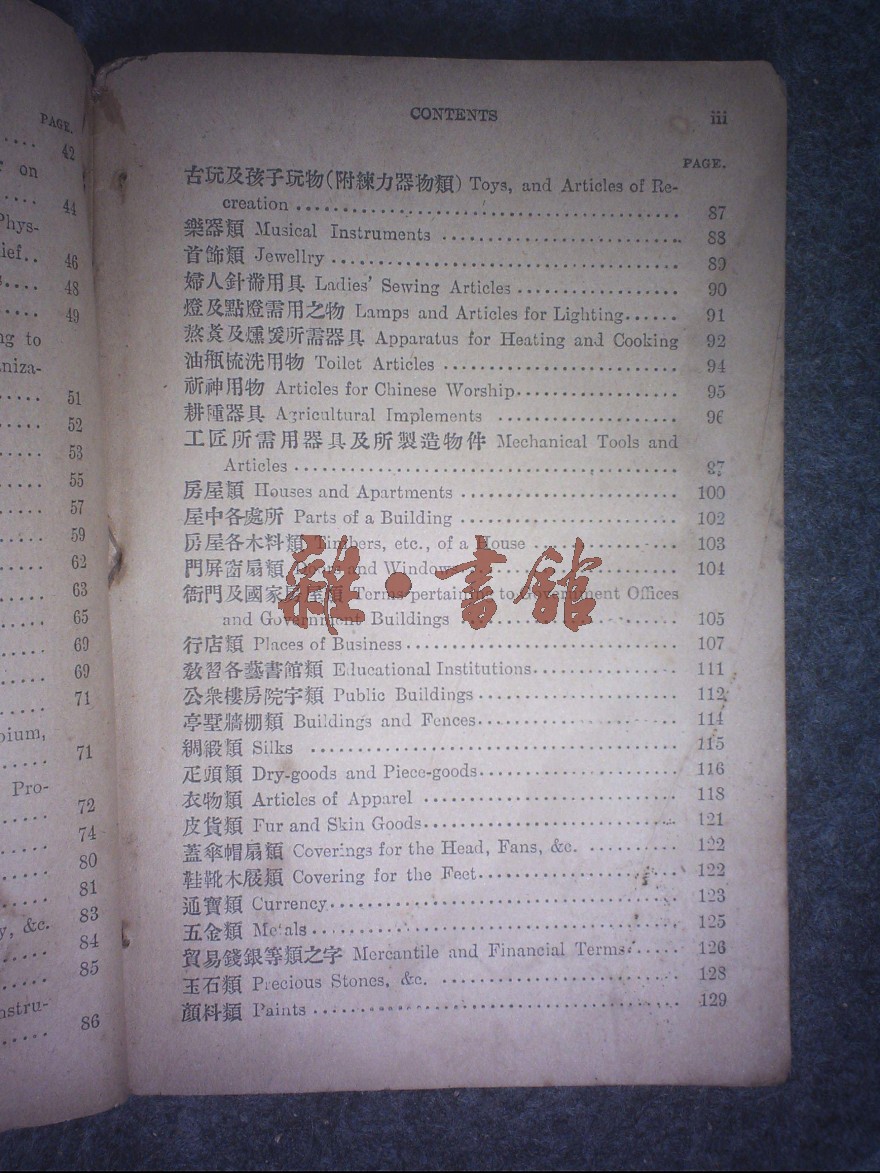 PAGE.
42
on
44
Phys-
lief..
46
48
49
ng to
niza-
51
52
53
55
57
59
62
63
65
69
69
71
pium,
71
Pro-
72
74
80
81
83
y, &c.
84
85
nstru-
86
CONTENTS iii
PAGE.
古玩及孩子玩物(附練力器物類) Toys, and Articles of Re-
creation ........ 87
樂器類 Musical Instruments ........ 88
首飾類 Jewellry ........ 89
婦人針黹用具 Ladies' Sewing Articles ........ 90
燈及點燈需用之物 Lamps and Articles for Lighting...... 91
熬煑及燻煖所需器具 Apparatus for Heating and Cooking 92
油瓶梳洗用物 Toilet Articles ........ 94
祈神用物 Articles for Chinese Worship........ 95
耕種器具 Agricultural Implements ........ 96
工匠所需用器具及所製造物件 Mechanical Tools and
Articles ........ 97
房屋類 Houses and Apartments ........ 100
屋中各處所 Parts of a Building ........ 102
房屋各木料類 Timbers, etc., of a House ........ 103
門屏窗扇類 Doors and Windows ........ 104
衙門及國家房屋類 Terms pertaining to Government Offices
and Government Buildings ........ 105
行店類 Places of Business........ 107
敎習各藝書館類 Educational Institutions........ 111
公衆樓房院宇類 Public Buildings ........ 112
亭墅牆棚類 Buildings and Fences........ 114
綢緞類 Silks ........ 115
疋頭類 Dry-goods and Piece-goods........ 116
衣物類 Articles of Apparel ........ 118
皮貨類 Fur and Skin Goods........ 121
蓋傘帽扇類 Coverings for the Head, Fans, &c. ........ 122
鞋靴木屐類 Covering for the Feet........ 122
通寶類 Currency........ 123
五金類 Metals........ 125
貿易錢銀等類之字 Mercantile and Financial Terms....... 126
玉石類 Precious Stones, &c. ........ 128
顏料類 Paints ........ 129
雜·書館